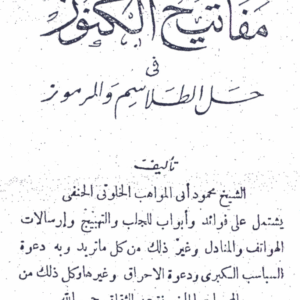 مفاتيح الكنوز
فى
حل الطلاسم والرموز
تأليف
الشيخ محمود أبى المواهب الخلوتى الحنفى
يشتمل على فوائد وأبواب للجلب والتهييج وإرسالات
الهواتف والمنادل وغير ذلك من كل ما تريد وبه دعوة
السباسب الكبرى ودعوة الاحراق وغيرها وكل ذلك من